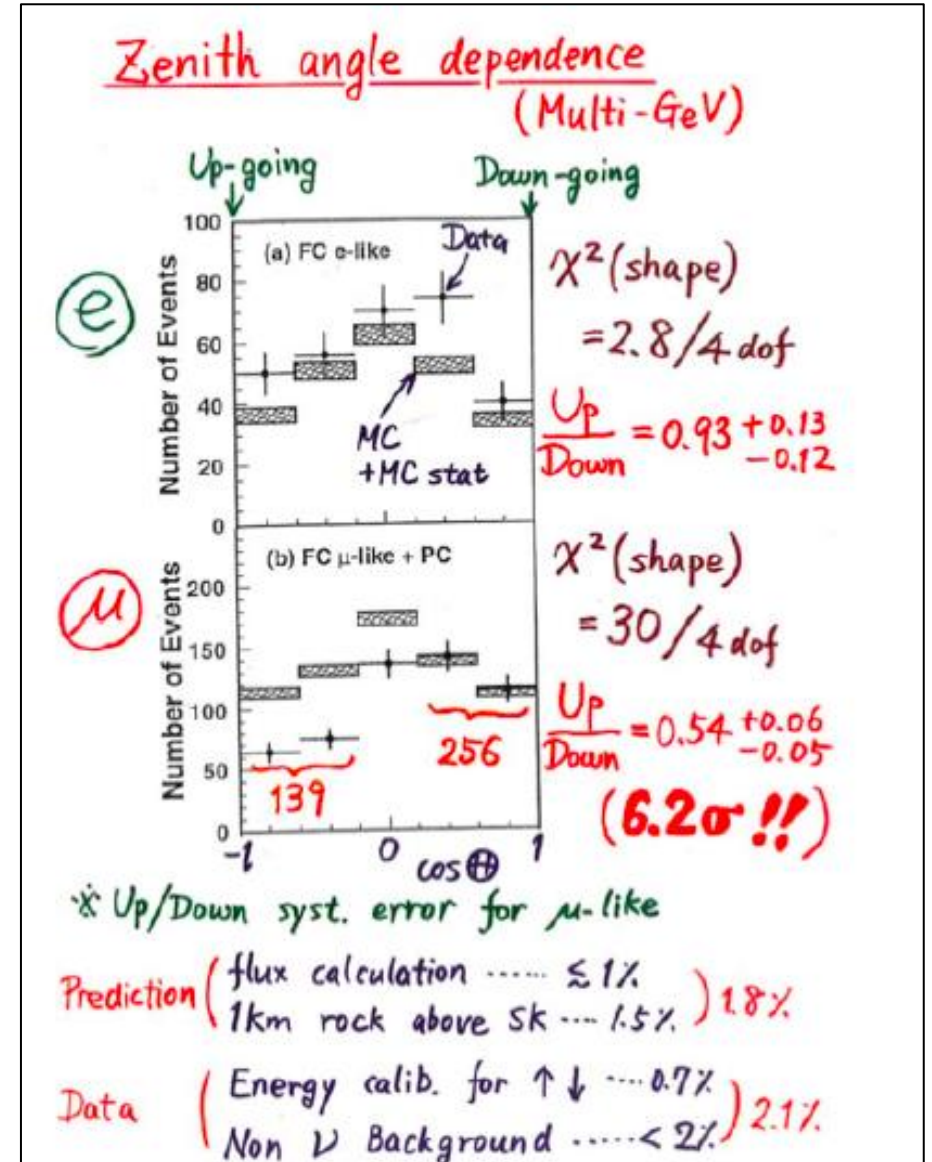 Zenith angle dependence
(Multi-GeV)
Up-going
Down-going
(a) FC e-like
Data
100
80
60
40
20
0
Number of Events
e
MC
+MC stat
χ²(shape)
=2.8/4 dof
Up/Down = 0.93 +0.13 -0.12
(b) FC μ-like + PC
200
150
100
50
0
Number of Events
μ
139
256
χ²(shape)
= 30/4 dof
Up/Down = 0.54 +0.06 -0.05
(6.2σ!!)
-1 0 1
cosΘ
※ Up/Down syst. error for μ-like
Prediction ( flux calculation ······ ≲ 1%
1km rock above SK ···· 1.5% ) 1.8%
Data ( Energy calib. for ↑↓ ···· 0.7%
Non ν Background ······ < 2% ) 2.1%